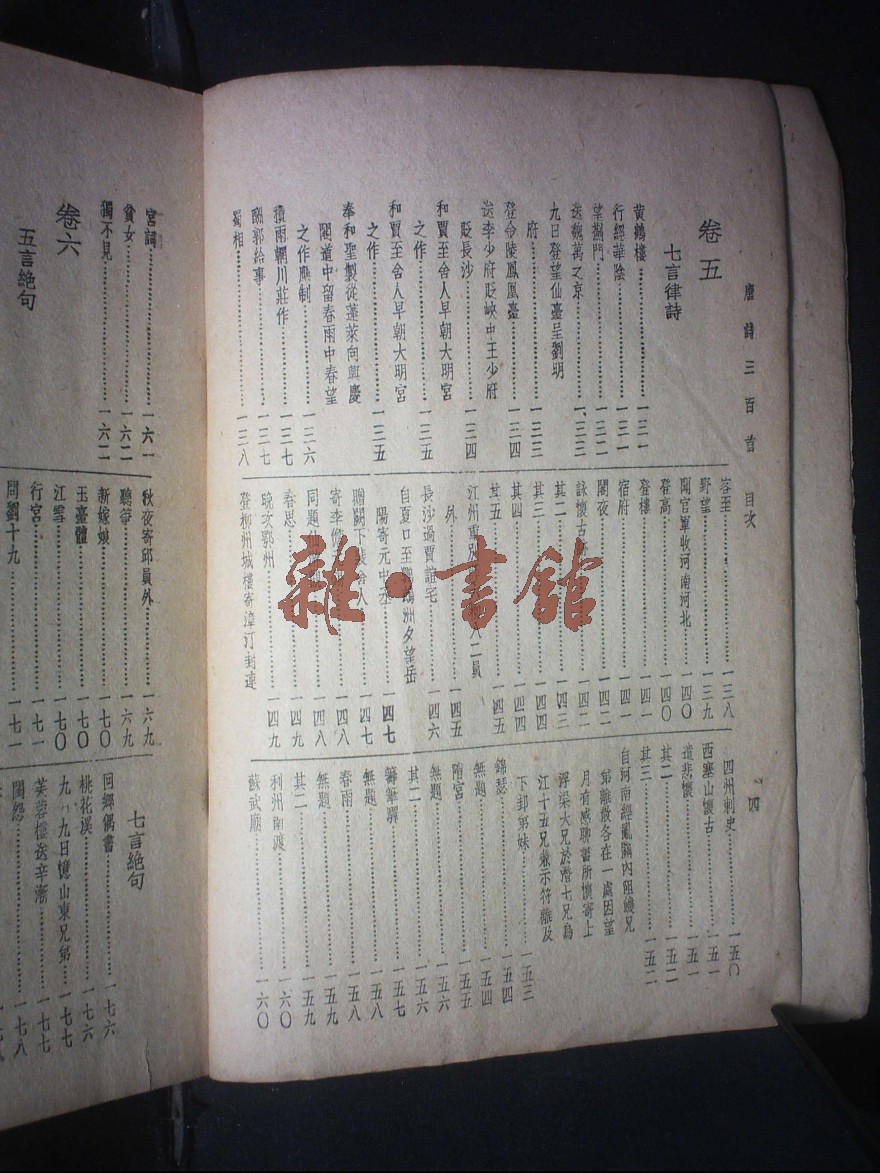 唐詩三百首 目次
一四
卷五
七言律詩
黃鶴樓…一三一
行經華陰…一三一
望薊門…一三二
送魏萬之京…一三三
九日登望仙臺呈劉明
府…一三三
登金陵鳳凰臺…一三四
送李少府貶峽中王少府
貶長沙…一三四
和賈至舍人早朝大明宮
之作…一三五
和賈至舍人早朝大明宮
之作…一三五
奉和聖製從蓬萊向興慶
閣道中留春雨中春望
之作應制…一三六
積雨輞川莊作…一三七
酬郭給事…一三七
蜀相…一三八
客至…一三八
野望…一三九
聞官軍收河南河北…一四〇
登高…一四〇
登樓…一四一
宿府…一四一
閣夜…一四二
詠懷古…一四二
其二…一四三
其三…一四四
其四…一四四
其五…一四五
江州重別 八二員
外…一四五
長沙過賈誼宅…一四六
自夏口至鸚鵡洲夕望岳
陽寄元中丞…一四七
贈闕下裴舍人…一四七
寄李儋…一四八
同題…一四八
春思…一四九
晚次鄂州…一四九
登柳州城樓寄漳汀封連
四州刺史…一五〇
西塞山懷古…一五一
遣悲懷…一五一
其二…一五二
其三…一五二
自河南經亂關內阻饑兄
弟離散各在一處因望
月有感聊書所懷寄上
浮梁大兄於潛七兄烏
江十五兄兼示符離及
下邽弟妹…一五三
錦瑟…一五四
無題…一五四
隋宮…一五五
無題…一五六
其二…一五六
籌筆驛…一五七
無題…一五八
春雨…一五八
無題…一五九
其二…一五九
利州南渡…一六〇
蘇武廟…一六〇
宮詞…一六一
貧女…一六二
獨不見…一六二
卷六
五言絕句
秋夜寄邱員外…一六九
聽箏…一六九
新嫁娘…一七〇
玉臺體…一七〇
江雪…一七〇
行宮…一七一
問劉十九…一七一
七言絕句
回鄉偶書…一七六
桃花溪…一七六
九月九日憶山東兄弟…一七七
芙蓉樓送辛漸…一七七
閨怨…一七八
雜·書館